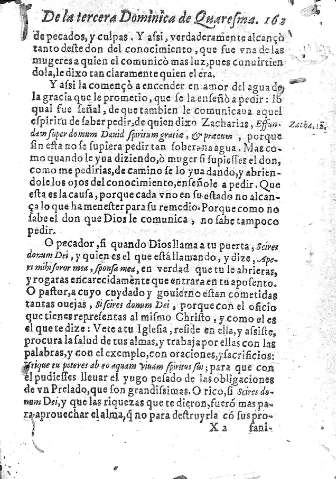 De la tercera Dominica de Quaresma. 162
de pecados, y culpas. Y assi, verdaderamente alcançò
tanto deste don del conocimiento, que fue vna de las
mugeres a quien el comunicò mas luz, pues conuirtien
dola, le dixo tan claramente quien el era.
Y assi la començò a encender en amor del agua de
la gracia que le prometio, que se la enseñò a pedir: lo
qual fue señal, de que tambien le comunicaua aquel
espiritu de saber pedir, de quien dixo Zacharias, Effun-
Zacha. 12.
dam super domum Dauid spiritum gratiæ, & precum, porque
sin esta no se supiera pedir tan soberana agua. Mas co-
mo quando le yua diziendo, ò muger si supiesses el don,
como me pedirias, de camino se lo yua dando, y abrien-
dole los ojos del conocimiento, enseñole a pedir. Que
esta es la causa, porque cada vno en su estado no alcan-
ça lo que ha menester para su remedio. Porque como no
sabe el don que Dios le comunica, no sabe tampoco
pedir.
O pecador, si quando Dios llama a tu puerta, Scires
donum Dei, y quien es el que està llamando, y dize, Ape-
ri mihi soror mea, sponsa mea, en verdad que tu le abrieras,
y rogaras encarecidamente que entrara en tu aposento.
O pastor, a cuyo cuydado y gouierno estan cometidas
tantas ouejas, Si scires donum Dei, porque con el oficio
que tienes representas al mismo Christo, y como el es
el que te dize: Vete a tu Iglesia, reside en ella, y assiste,
procura la salud de tus almas, y trabaja por ellas con las
palabras, y con el exemplo, con oraciones, y sacrificios:
para que con
el pudiesses lleuar el yugo pesado de las obligaciones
de vn Prelado, que son grandissimas. O rico, si Scires do-
num Dei, y que las riquezas que te dieron, fuerõ mas pa-
ra aprouechar el alma, q̃ no para destruyrla cõ sus pro-
X 2 fani-